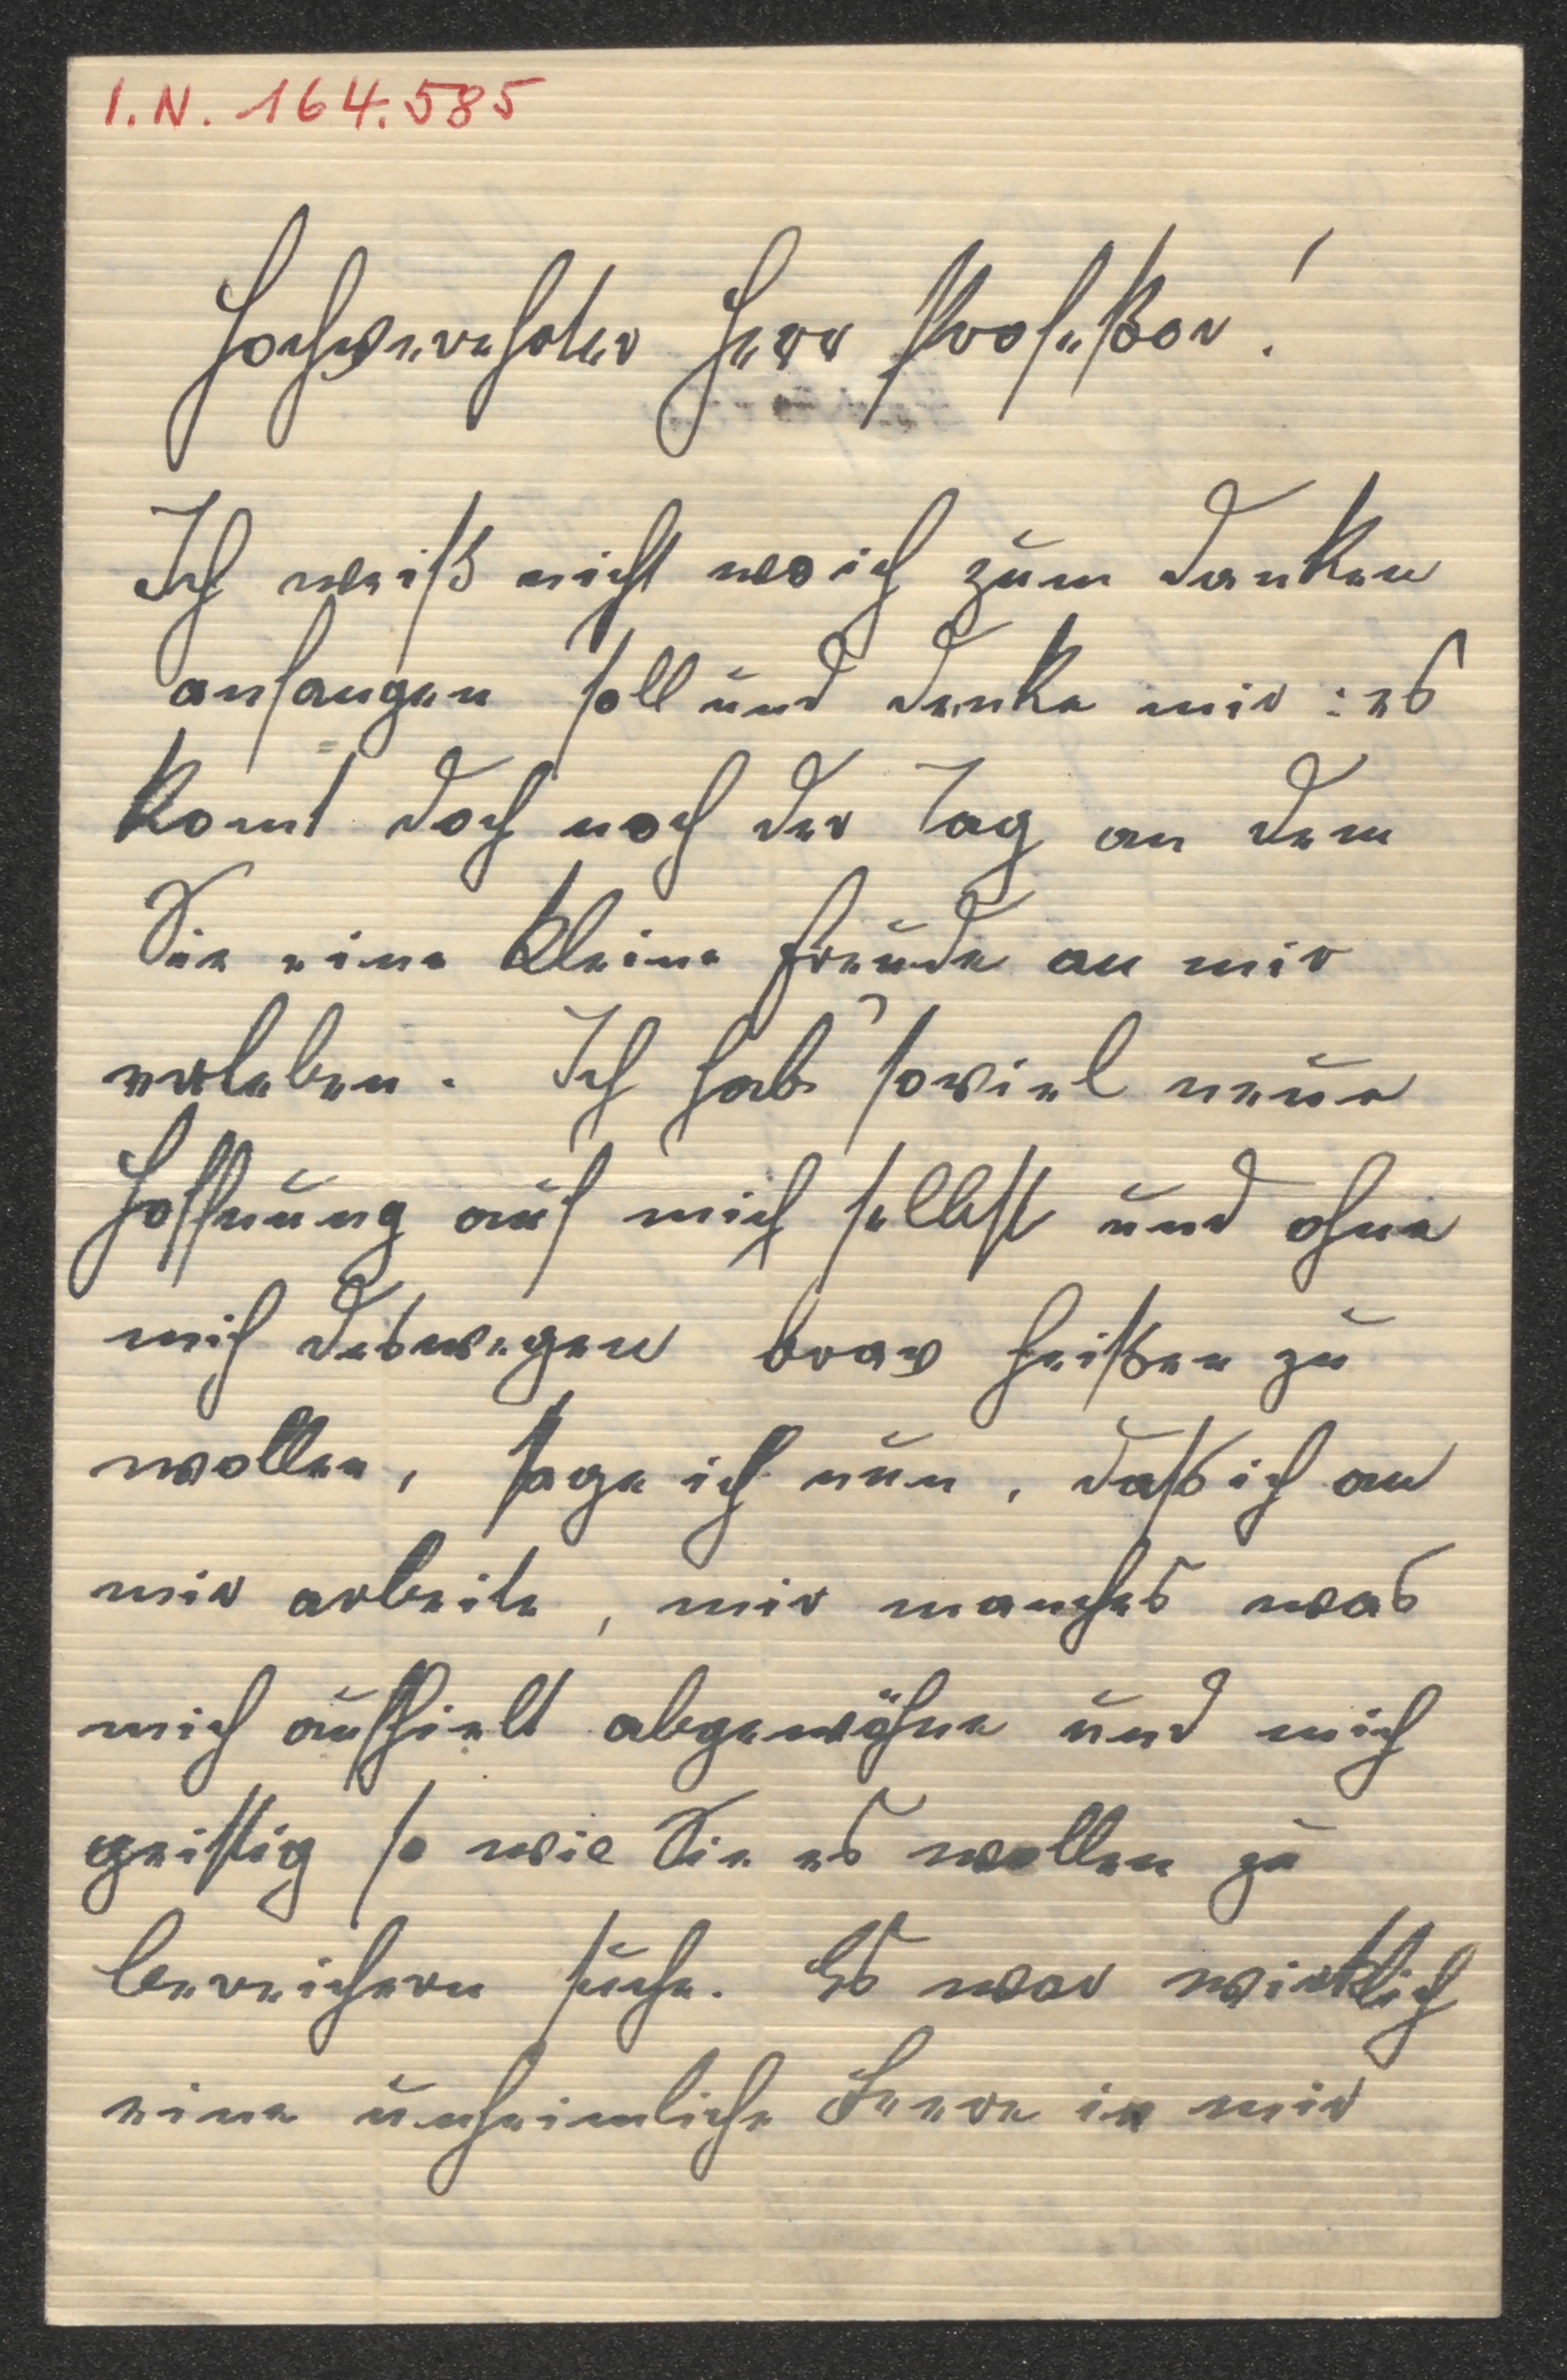 I.N. 164.585
Hochverehrter Herr Profeßor!
Ich weiß nicht wo ich zum danken
anfangen soll und denke mir : es
komt doch noch der Tag an dem
Sie eine kleine Freude an mir
erleben. Ich hab' soviel neue
Hoffnung auf mich selbst und ohne
mich deswegen brav heißen zu
wollen, sage ich nun, daß ich an
mir arbeite, mir manches was
mich aufhielt abgewöhne und mich
geistig so wie Sie es wollen zu
bereichern suche. Es war wirklich
eine unheimliche Leere in mir